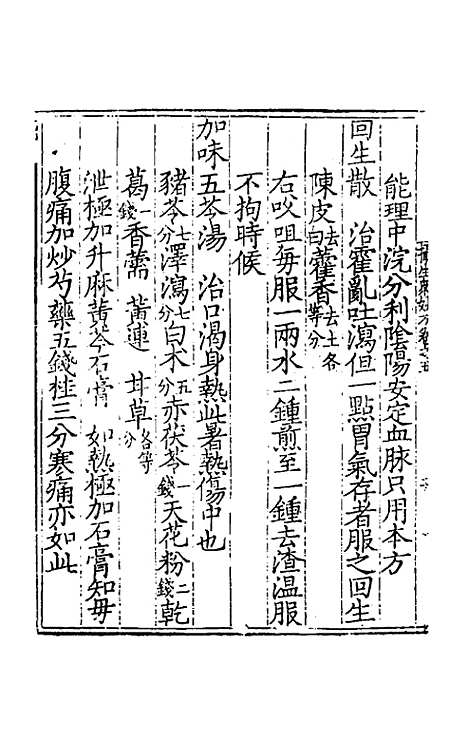 能理中浣分利陰陽安定血脉只用本方
回生散　治霍亂吐瀉但一點胃氣存者服之回生
陳皮去白藿香去土各等分
右㕮咀每服一兩水二鍾煎至一鍾去渣溫服
不拘時候
加味五苓湯　治口渴身熱此暑熱傷中也
豬苓七分澤瀉七分白木五分赤茯苓一錢天花粉二錢乾
葛一錢香薷　黃連　甘草各等分
泄極加升麻黃芩石膏　如熱極加石膏知毋
腹痛加炒芍藥五錢桂三分寒痛亦如此